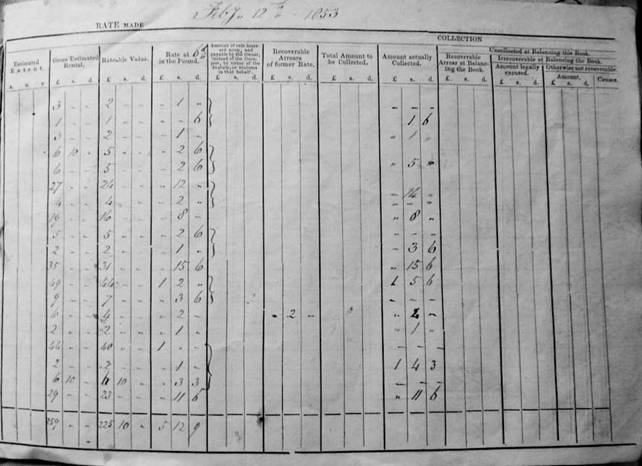 RATE MADE Feby 12th 1853
COLLECTION
Estimated Extent.
Gross Estimated Rental.
Rateable Value.
Rate at 6d in the Pound.
Recoverable Arrears of former Rate.
Total Amount to be Collected.
Amount actually Collected.
Recoverable Arrear at Balancing the Book.
Uncollected at Balancing the Book.
Irrecoverable at Balancing the Book.
Amount legally excused.
Otherwise not recoverable.
Amount.
Causes.
£ s. d. £ s. d. £ s. d. £ s. d. £ s. d. £ s. d. £ s. d. £ s. d. £ s. d. £ s. d.
3 - - 2 - - - 1 " - - -
1 - - 1 - - - - 6 " 1 6
3 - - 2 - - - 1 - " 1 -
6 10 - 5 - - - 2 6 - - -
6 - - 5 - - - 2 6 " 5 "
27 - - 24 - - - 12 - - - -
4 - - 4 - - - 2 " - 14 -
19 - - 16 - - - 8 - " 8 "
5 - - 5 - - - 2 6 - - -
2 - - 2 - - - 1 - - 3 6
35 - - 31 - - - 15 6 " 15 6
49 - - 44 - - 1 2 " 1 5 6
9 - - 7 - - - 3 6 - - -
6 - - 4 - - - 2 - - 2 - " 2 -
2 - - 2 - " - 1 - " 1 -
44 - - 40 - - 1 - - - - -
2 - - 2 - - - 1 - 1 4 3
6 10 - 6 10 - - 3 3 - - -
29 - - 23 - - - 11 6 " 11 6
259 - - 225 10 " 5 12 9